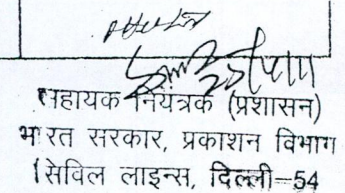 सहायक नियंत्रक (प्रशासन)
भारत सरकार, प्रकाशन विभाग
सिविल लाइन्स, दिल्ली—54